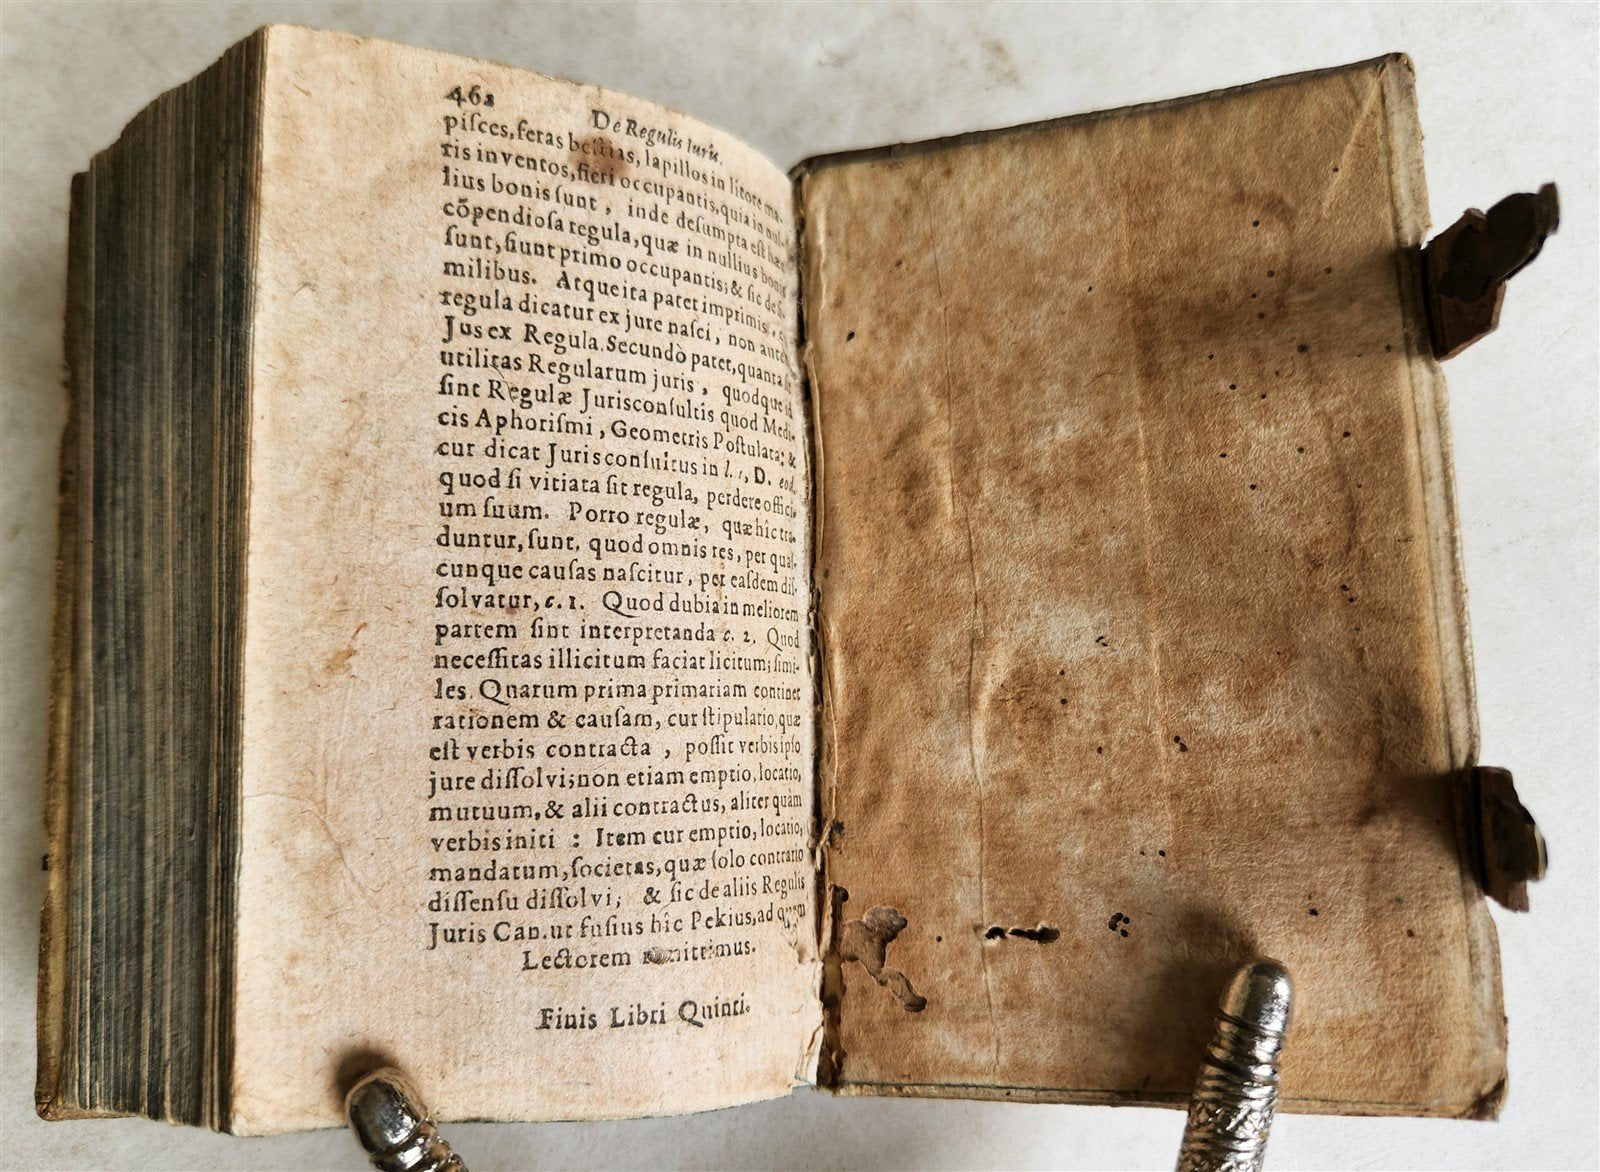 462
De Regulis Iuris.
piſces, feras beſtias, lapillos in litore ma-
ris inventos, fieri occupantis, quia in nul-
lius bonis ſunt, inde deſumpta eſt hæc
cõpendioſa regula, quæ in nullius bonis
ſunt, fiunt primo occupantis; & ſic de ſi-
milibus. Atque ita patet imprimis,
regula dicatur ex jure naſci, non autẽ
Jus ex Regula. Secundò patet, quanta ſit
utilitas Regularum juris, quodque id
ſint Regulæ Jurisconſultis quod Medi-
cis Aphoriſmi, Geometris Poſtulata: &
cur dicat Jurisconſultus in l. 1, D. eod.
quod ſi vitiata ſit regula, perdere offici-
um ſuum. Porro regulæ, quæ hîc tra-
duntur, ſunt, quod omnis res, per quaſ-
cunque cauſas naſcitur, per eaſdem diſ-
ſolvatur, c. 1. Quod dubia in meliorem
partem ſint interpretanda c. 2. Quod
neceſſitas illicitum faciat licitum; ſimi-
les. Quarum prima primariam continet
rationem & cauſam, cur ſtipulatio, quæ
eſt verbis contracta, poſſit verbis ipſo
jure diſſolvi; non etiam emptio, locatio,
mutuum, & alii contractus, aliter quàm
verbis initi : Item cur emptio, locatio,
mandatum, ſocietas, quæ ſolo contrario
diſſenſu diſſolvi; & ſic de aliis Regulis
Juris Can. ut fuſius hîc Pekius, ad quem
Lectorem remittimus.
Finis Libri Quinti.